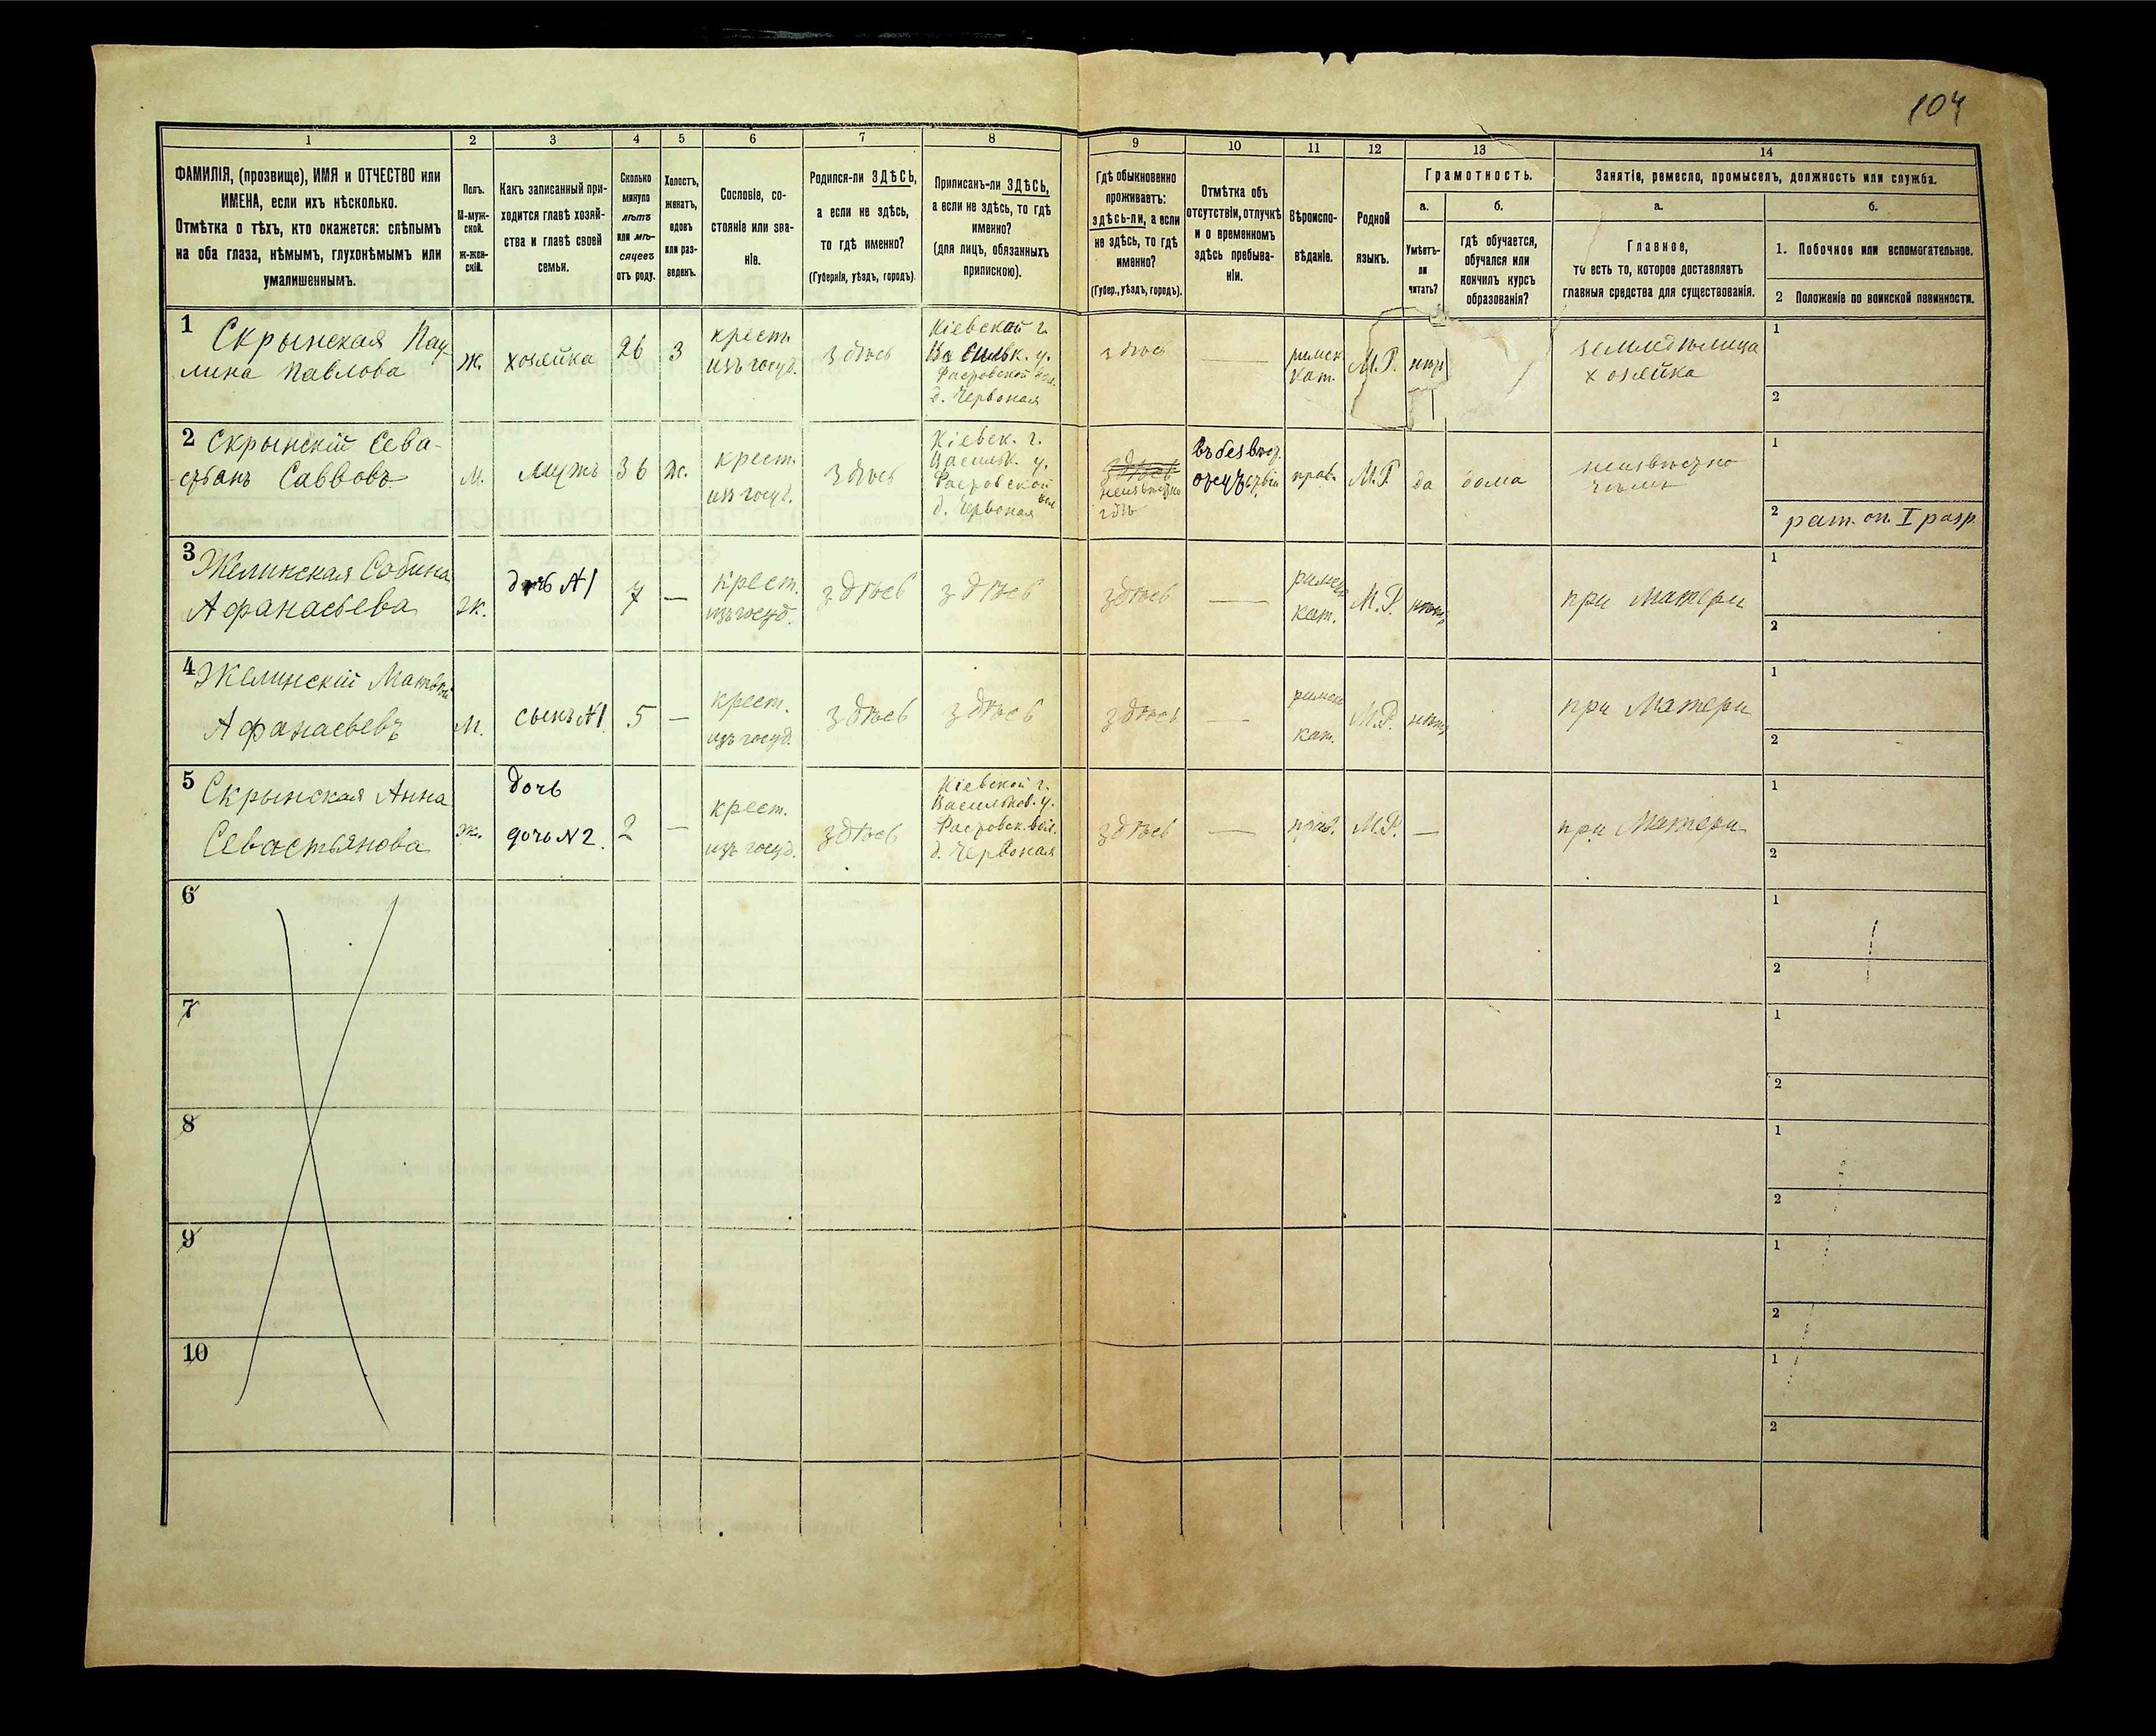 104
1
2
3
4
5
6
7
8
9
10
11
12
13
14
ФАМИЛІЯ, (прозвище), ИМЯ и ОТЧЕСТВО или
ИМЕНА, если ихъ нѣсколько.
Отмѣтка о тѣхъ, кто окажется: слѣпымъ
на оба глаза, нѣмымъ, глухонѣмымъ или
умалишеннымъ.
Полъ.
М-муж-
ской.
Ж-жен-
скій.
Какъ записанный при-
ходится главѣ хозяй-
ства и главѣ своей
семьи.
Сколько
минуло
лѣтъ
или мѣ-
сяцевъ
отъ роду.
Холостъ,
женатъ,
вдовъ
или раз-
веденъ.
Сословіе, со-
стояніе или зва-
ніе.
Родился-ли ЗДѢСЬ,
а если не здѣсь,
то гдѣ именно?
(Губернія, уѣздъ, городъ).
Приписанъ-ли ЗДѢСЬ,
а если не здѣсь, то гдѣ
именно?
(для лицъ, обязанныхъ
припискою).
Гдѣ обыкновенно
проживаетъ:
здѣсь-ли, а если
не здѣсь, то гдѣ
именно?
(Губер., уѣздъ, городъ).
Отмѣтка объ
отсутствіи, отлучкѣ
и о временномъ
здѣсь пребыва-
ніи.
Вѣроиспо-
вѣданіе.
Родной
языкъ.
Грамотность.
а.
Умѣетъ-
ли
читать?
б.
гдѣ обучается,
обучался или
кончилъ курсъ
образованія?
Занятіе, ремесло, промыселъ, должность или служба.
а.
Главное,
то есть то, которое доставляетъ
главныя средства для существованія.
б.
1. Побочное или вспомогательное.
2 Положеніе по воинской повинности.
1
Скрынская Пау
лина Павлова
ж.
хозяйка
26
З
крест.
изъ госуд.
здѣсь
Кіевской г.
Васильк. у.
Фастовской вол.
д. Червоная
здѣсь
римск
кат.
М.Р.
нѣтъ
земледѣлица
хозяйка
1
2
2
Скрынскій Сева-
стьянъ Саввовъ
М.
мужъ
36
ж.
крест.
изъ госуд.
здѣсь
Кіевск. г.
Васильк. у.
Фастовской
вол
д. Червоная
здѣсь
неизвѣстно
гдѣ
въ безвѣст.
отсутствіи
прав.
М.Р.
да
дома
неизвѣстно
чѣмъ
1
2
рат. оп. I разр.
3
Желинская Сабина
Афанасьева
ж.
дочь №1
7
—
крест.
изъ госуд.
здѣсь
здѣсь
здѣсь
—
римск
кат.
М.Р.
нѣтъ
при матери
1
2
4
Желинскій Матвѣй
Афанасьевъ
М.
сынъ №1
5
—
крест.
изъ госуд.
здѣсь
здѣсь
здѣсь
—
римск
кат.
М.Р.
нѣтъ
при матери
1
2
5
Скрынская Анна
Севастьянова
ж.
дочь
дочь №2.
2
—
крест.
изъ госуд.
здѣсь
Кіевской г.
Васильков. у.
Фастовск. вол.
д. Червоная
здѣсь
—
прав.
М.Р.
—
при матери
1
2
6
1
2
7
1
2
8
1
2
9
1
2
10
1
2